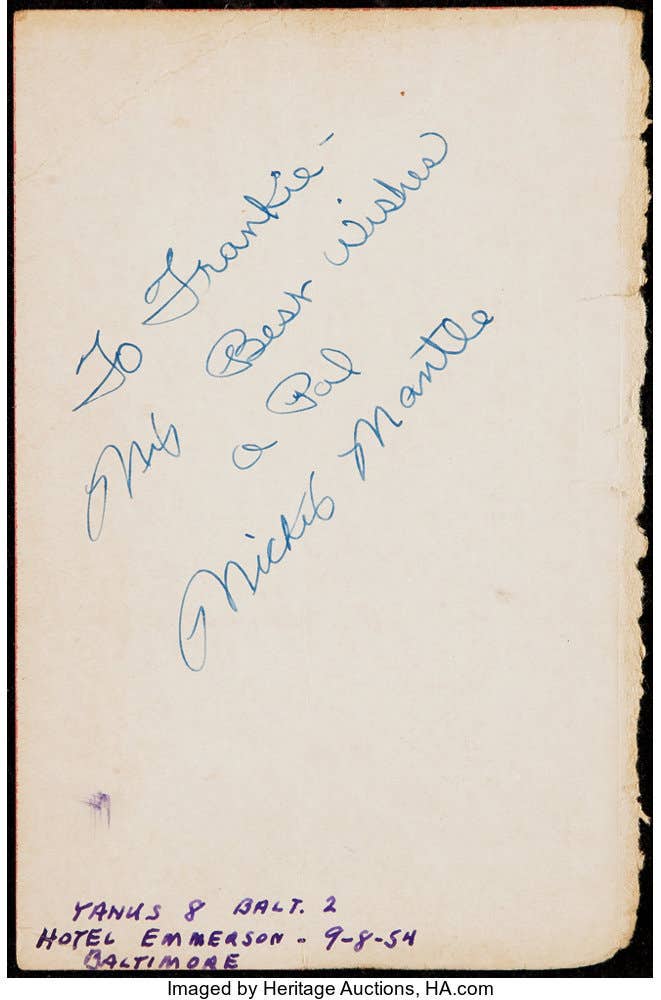 To Frankie -
My Best Wishes
a Pal
Mickey Mantle
YANKS 8 BALT. 2
HOTEL EMMERSON - 9-8-54
BALTIMORE
Imaged by Heritage Auctions, HA.com